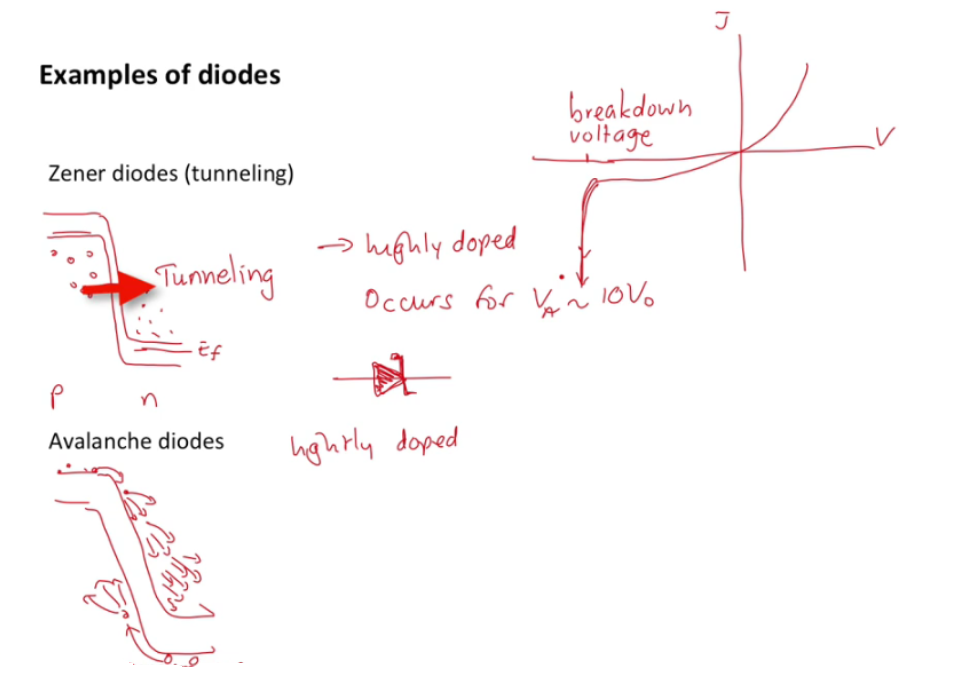 Examples of diodes
J
breakdown
voltage
V
Zener diodes (tunneling)
→ highly doped
Tunneling
Occurs for V_A ~ 10V_0
E_f
p n
Avalanche diodes
lightly doped